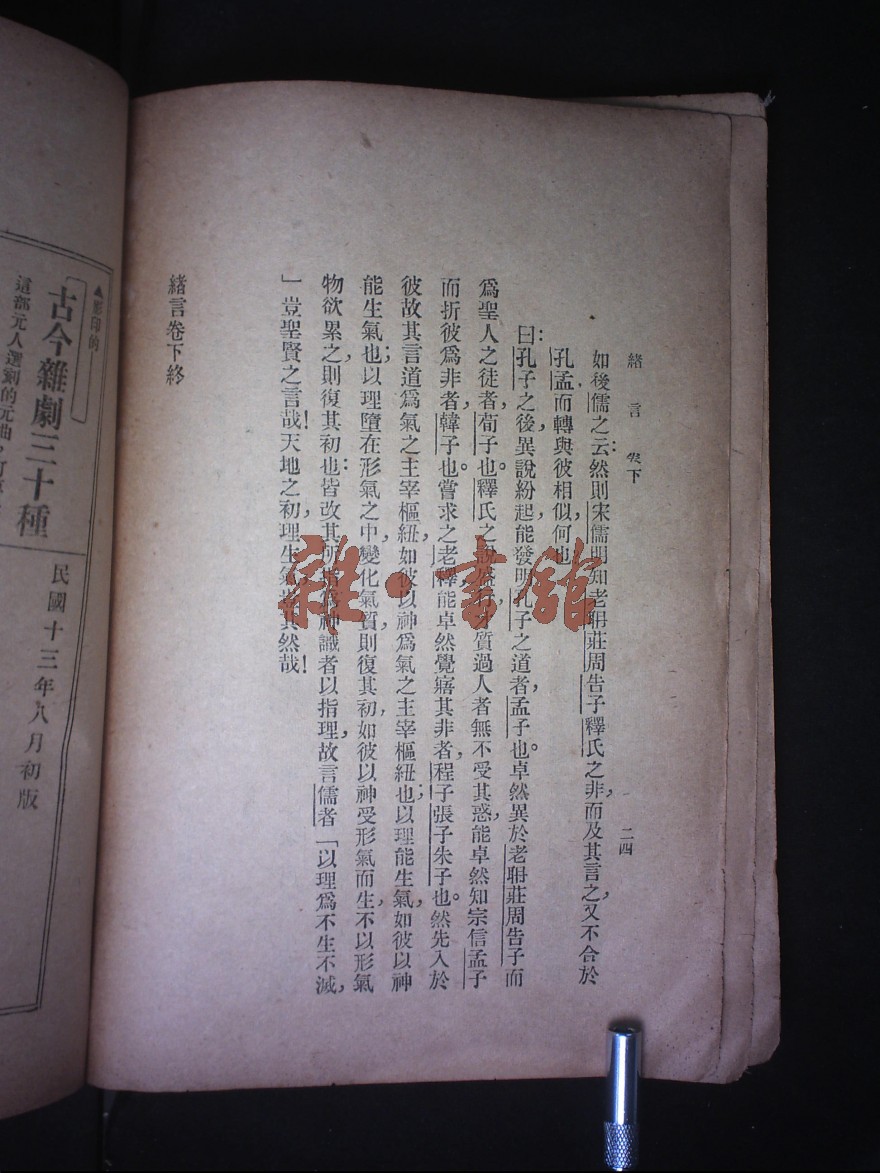 緒言 卷下
二四
如後儒之云:然則宋儒明知老聃莊周告子釋氏之非,而及其言之,又不合於
孔孟,而轉與彼相似,何也
曰:孔子之後,異說紛起,能發明孔子之道者,孟子也。卓然異於老聃莊周告子而
爲聖人之徒者,荀子也。釋氏之說盛行,才質過人者無不受其惑,能卓然知宗信孟子
而折彼爲非者,韓子也。嘗求之老釋,能卓然覺寤其非者,程子張子朱子也。然先入於
彼,故其言道爲氣之主宰樞紐,如彼以神爲氣之主宰樞紐也;以理能生氣,如彼以神
能生氣也;以理墮在形氣之中,變化氣質則復其初,如彼以神受形氣而生,不以形氣
物欲累之,則復其初也:皆改其所指爲神識者以指理,故言儒者「以理爲不生不滅,
」豈聖賢之言哉!天地之初,理生氣,豈其然哉!
緒言卷下終
▲影印的
古今雜劇三十種
這部元人選刻的元曲,
民國十三年八月初版
雜·書館